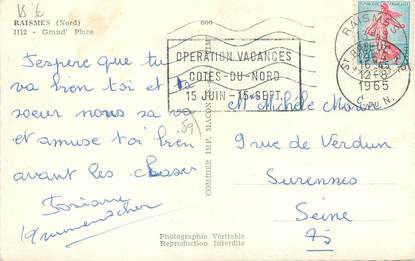 RAISMES (Nord)
1112 - Grand' Place
J'espere que tu
va bien toi et ta
soeur nous sa va
et amuse toi bien
avant les classes
Josiane
OPERATION VACANCES
COTES-DU-NORD
15 JUIN - 15 SEPT.
RAISMES
12-8
1965
COMBIER IMP. MACON
Photographie Véritable
Reproduction Interdite
M Michèle
9 rue de Verdun
Suresnes
Seine